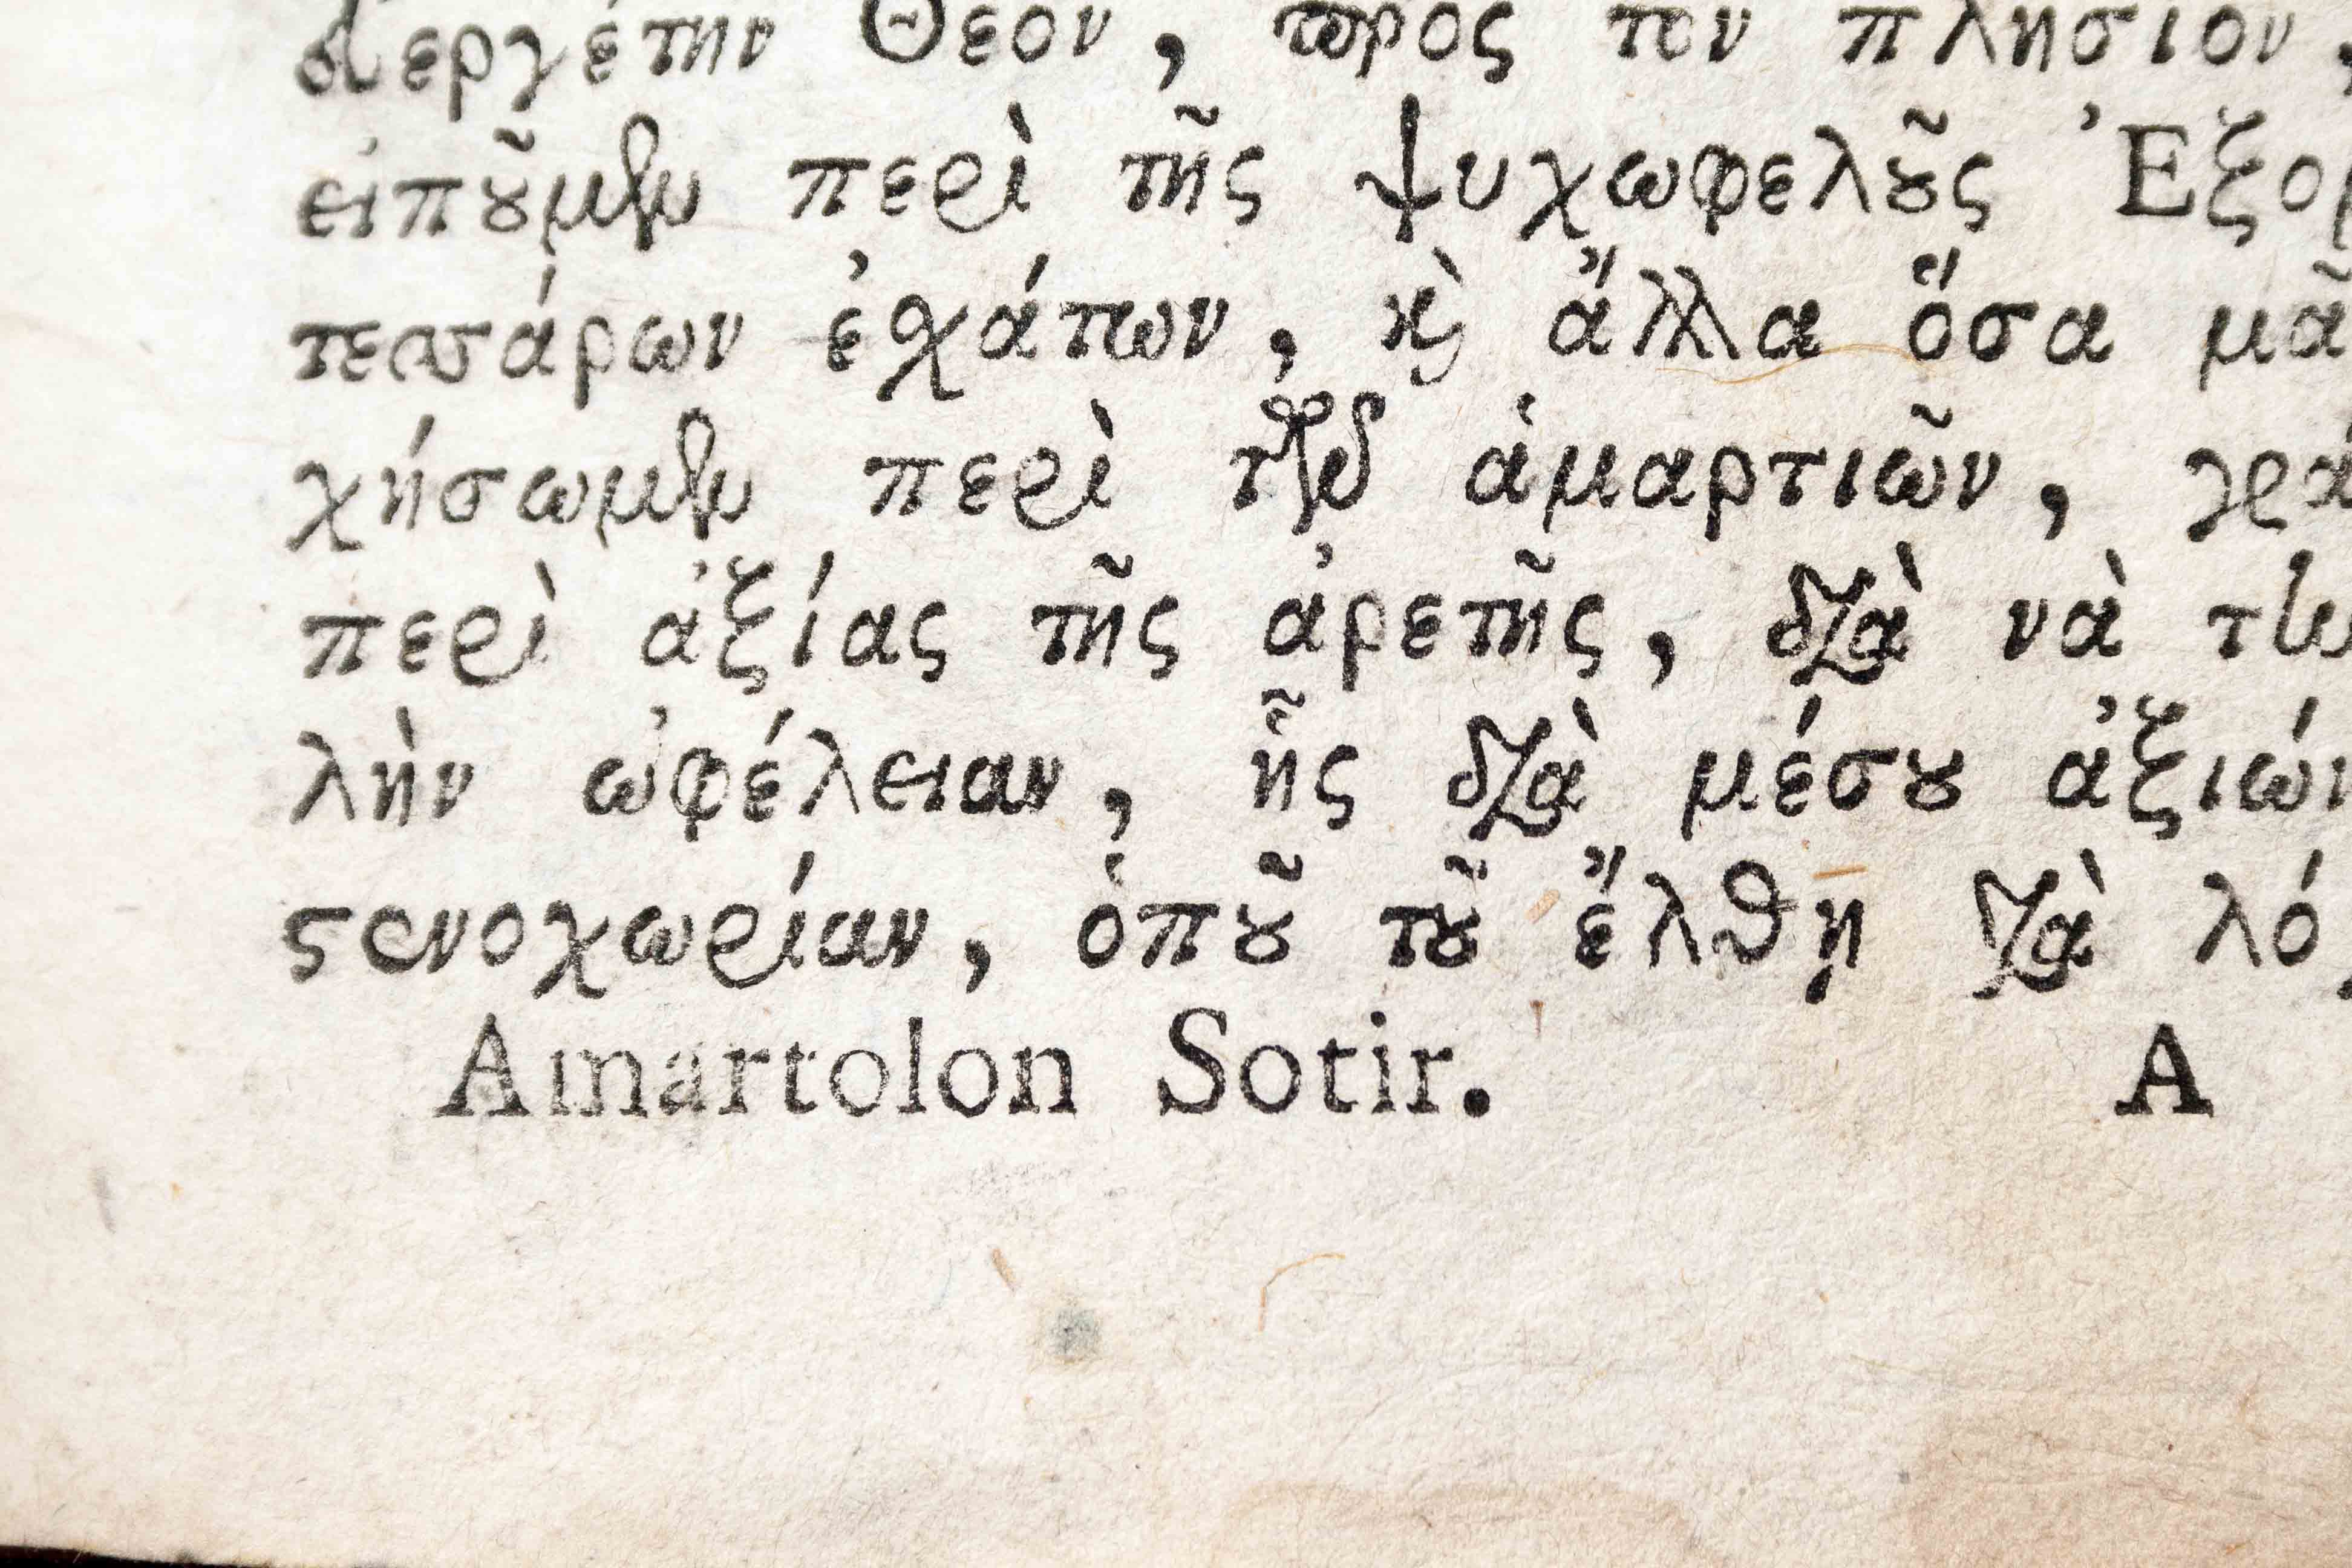 εὐεργέτην Θεὸν, πρὸς τὸν πλησίον,
εἰποῦμεν περὶ τῆς ψυχωφελοῦς Ἐξο
τεσσάρων ἐσχάτων, καὶ ἄλλα ὅσα μᾶ
χήσωμεν περὶ τῶν ἁμαρτιῶν, γρά
περὶ ἀξίας τῆς ἀρετῆς, διὰ νὰ τὴν
λὴν ὠφέλειαν, ἧς διὰ μέσου ἀξιώ
στενοχωρίαν, ὁποῦ τοῦ ἔλθῃ διὰ λό
Amartolon Sotir. A